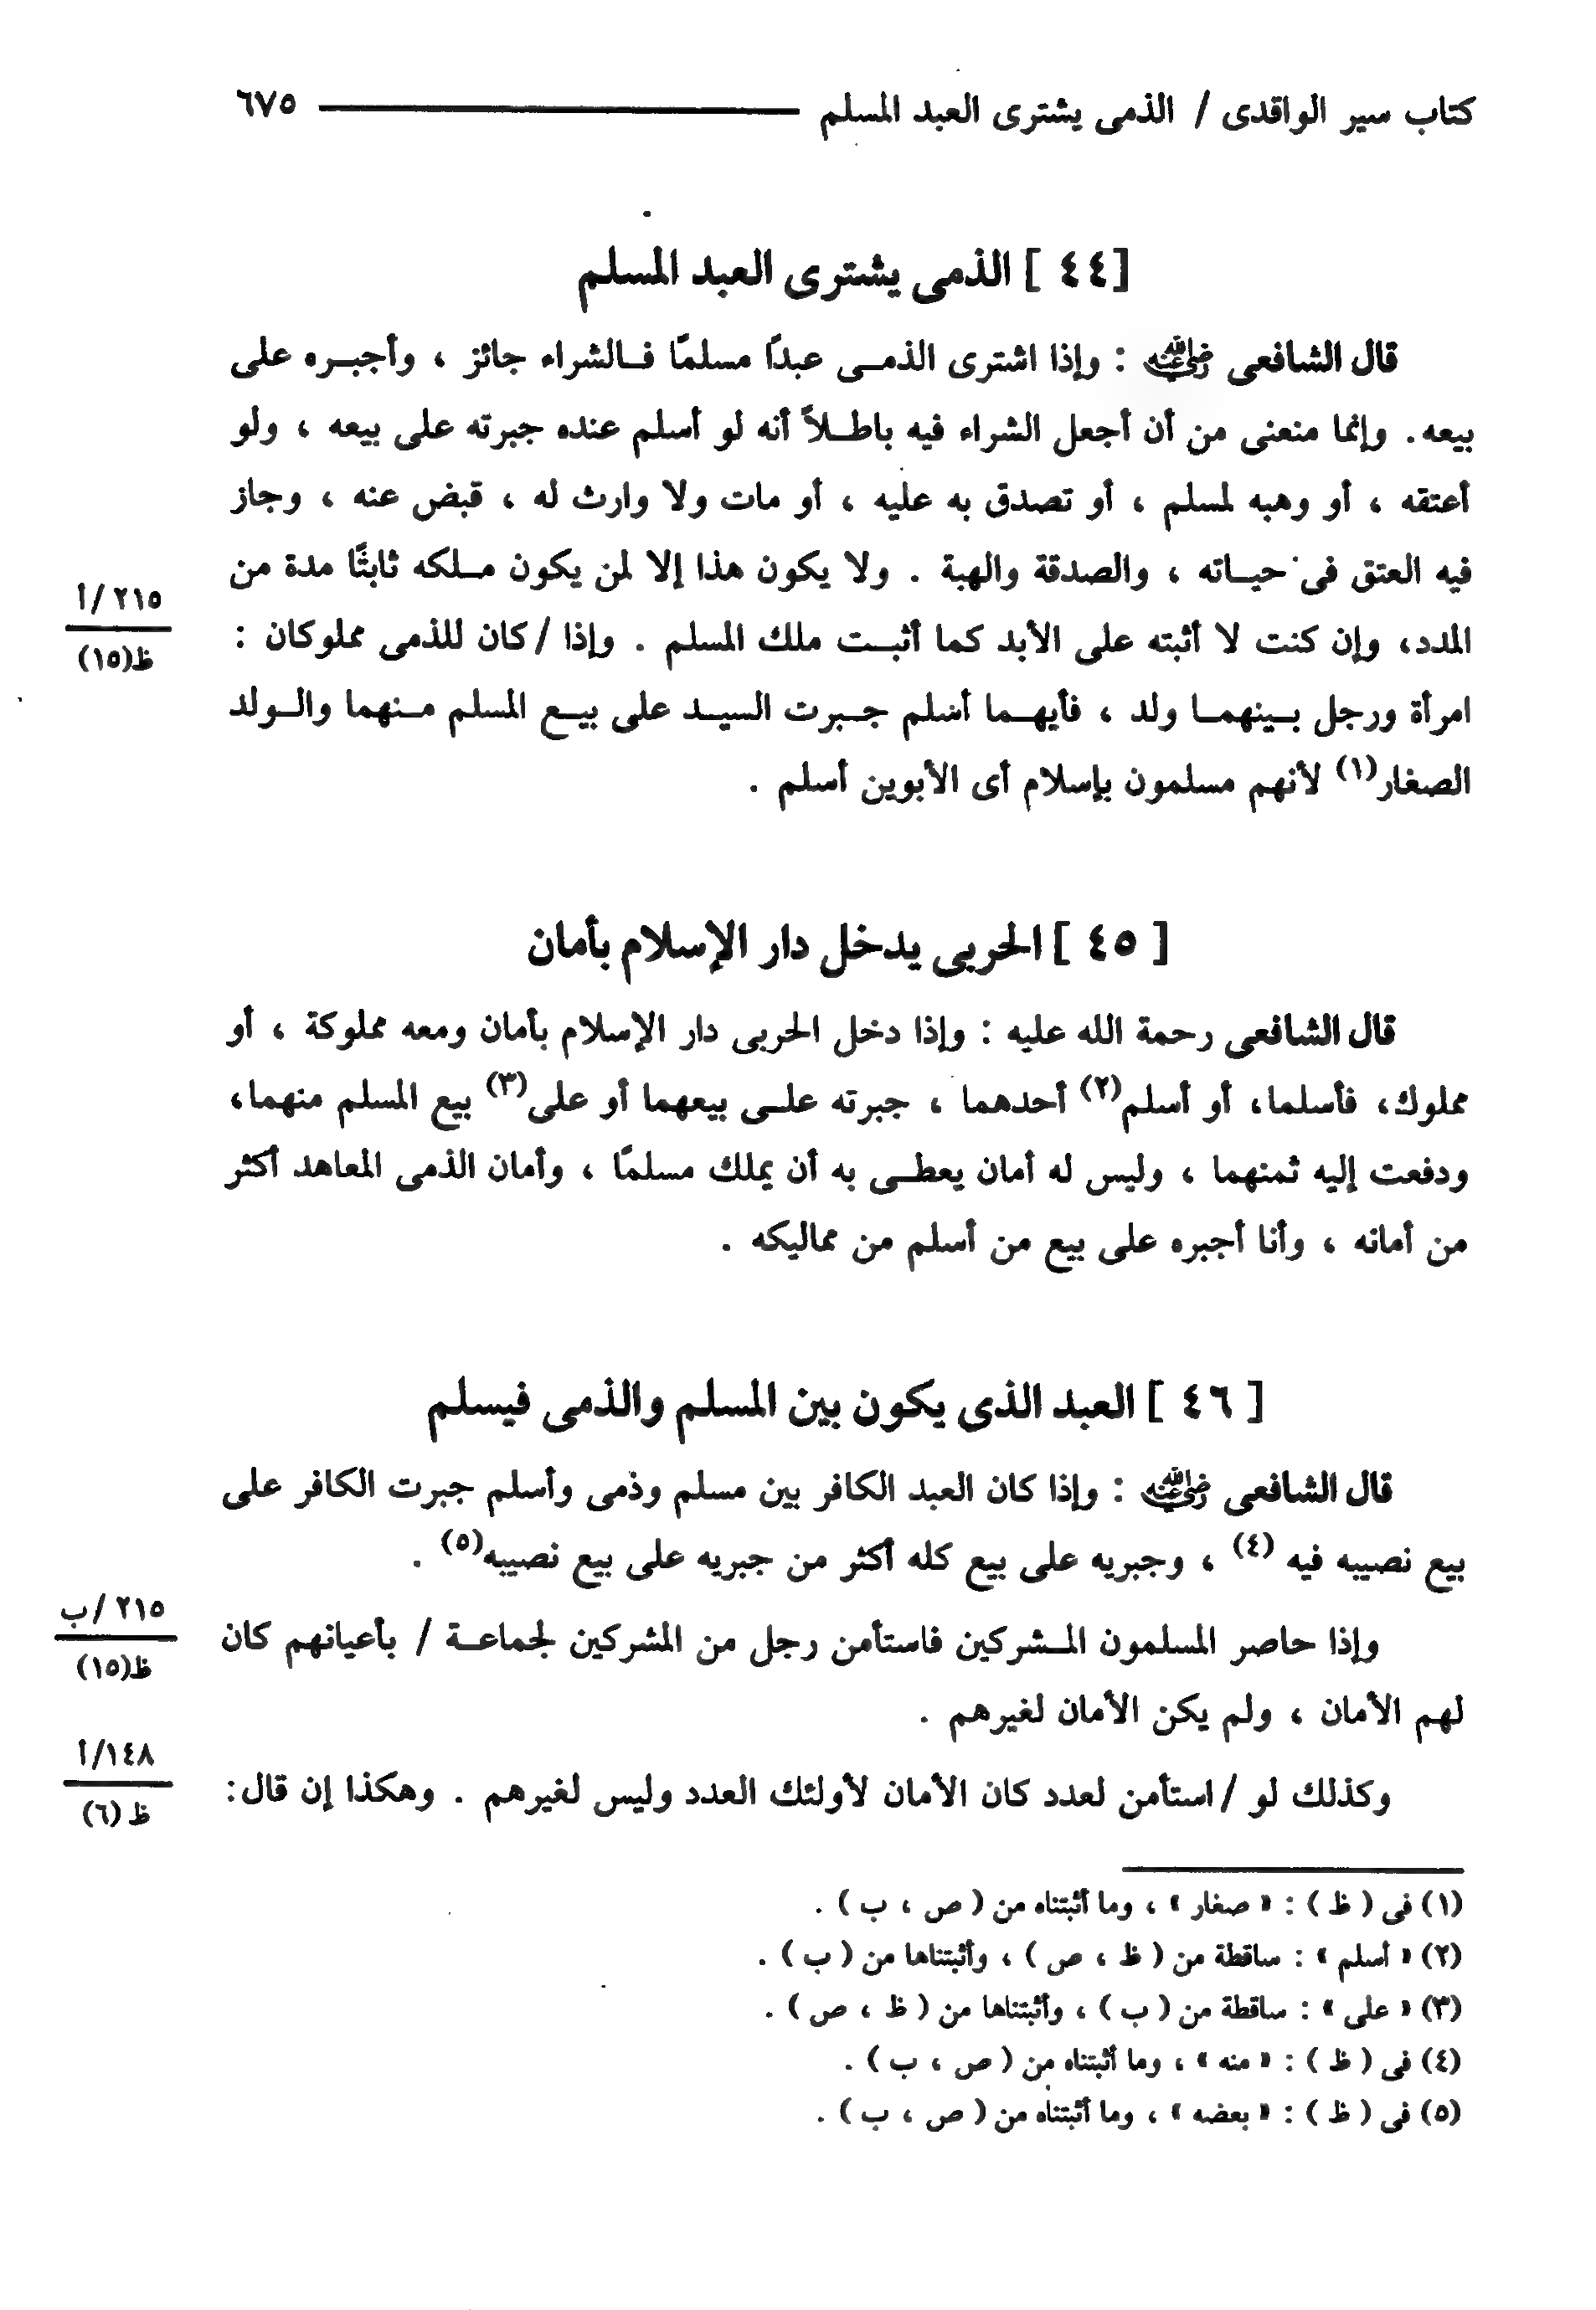 كتاب سير الواقدى / الذمى يشترى العبد المسلم ٦٧٥
[٤٤ ] الذمى يشترى العبد المسلم
قال الشافعى رضي الله عنه : وإذا اشترى الذمــى عبدًا مسلمًا فــالشراء جائز ، وأجبــره على
بيعه. وإنما منعنى من أن أجعل الشراء فيه باطــلاً أنه لو أسلم عنده جبرته على بيعه ، ولو
أعتقه ، أو وهبه لمسلم ، أو تصدق به عليه ، أو مات ولا وارث له ، قبض عنه ، وجاز
فيه العتق فى حيــاته ، والصدقة والهبة . ولا يكون هذا إلا لمن يكون مــلكه ثابتًا مدة من
٢١٥ /أ
المدد، وإن كنت لا أثبته على الأبد كما أثبــت ملك المسلم . وإذا /كان للذمى مملوكان :
ظ(١٥)
امرأة ورجل بــينهمــا ولد ، فأيهــما أسلم جــبرت السيــد على بيــع المسلم مــنهما والــولد
الصغار(١) لأنهم مسلمون بإسلام أى الأبوين أسلم .
[ ٤٥ ] الحربى يدخل دار الإسلام بأمان
قال الشافعى رحمة الله عليه : وإذا دخل الحربى دار الإسلام بأمان ومعه مملوكة ، أو
مملوك، فأسلما، أو أسلم(٢) أحدهما ، جبرته علــى بيعهما أو على(٣) بيع المسلم منهما،
ودفعت إليه ثمنهما ، وليس له أمان يعطــى به أن يملك مسلمًا ، وأمان الذمى المعاهد أكثر
من أمانه ، وأنا أجبره على بيع من أسلم من مماليكه .
[ ٤٦ ] العبد الذى يكون بين المسلم والذمى فيسلم
قال الشافعى رضي الله عنه : وإذا كان العبد الكافر بين مسلم وذمى وأسلم جبرت الكافر على
بيع نصيبه فيه (٤) ، وجبريه على بيع كله أكثر من جبريه على بيع نصيبه(٥) .
٢١٥ /ب
ظ(١٥)
وإذا حاصر المسلمون المــشركين فاستأمن رجل من المشركين لجماعــة / بأعيانهم كان
لهم الأمان ، ولم يكن الأمان لغيرهم .
١٤٨/أ
ظ (٦)
وكذلك لو /استأمن لعدد كان الأمان لأولئك العدد وليس لغيرهم . وهكذا إن قال:
(١) فى ( ظ ) : « صغار » ، وما أثبتناه من ( ص ، ب ) .
(٢) « أسلم » : ساقطة من ( ظ ، ص ) ، وأثبتناها من ( ب ) .
(٣) « على » : ساقطة من ( ب ) ، وأثبتناها من ( ظ ، ص ) .
(٤) فى ( ظ ) : « منه » ، وما أثبتناه من ( ص ، ب ) .
(٥) فى ( ظ ) : « بعضه » ، وما أثبتناه من ( ص ، ب ) .